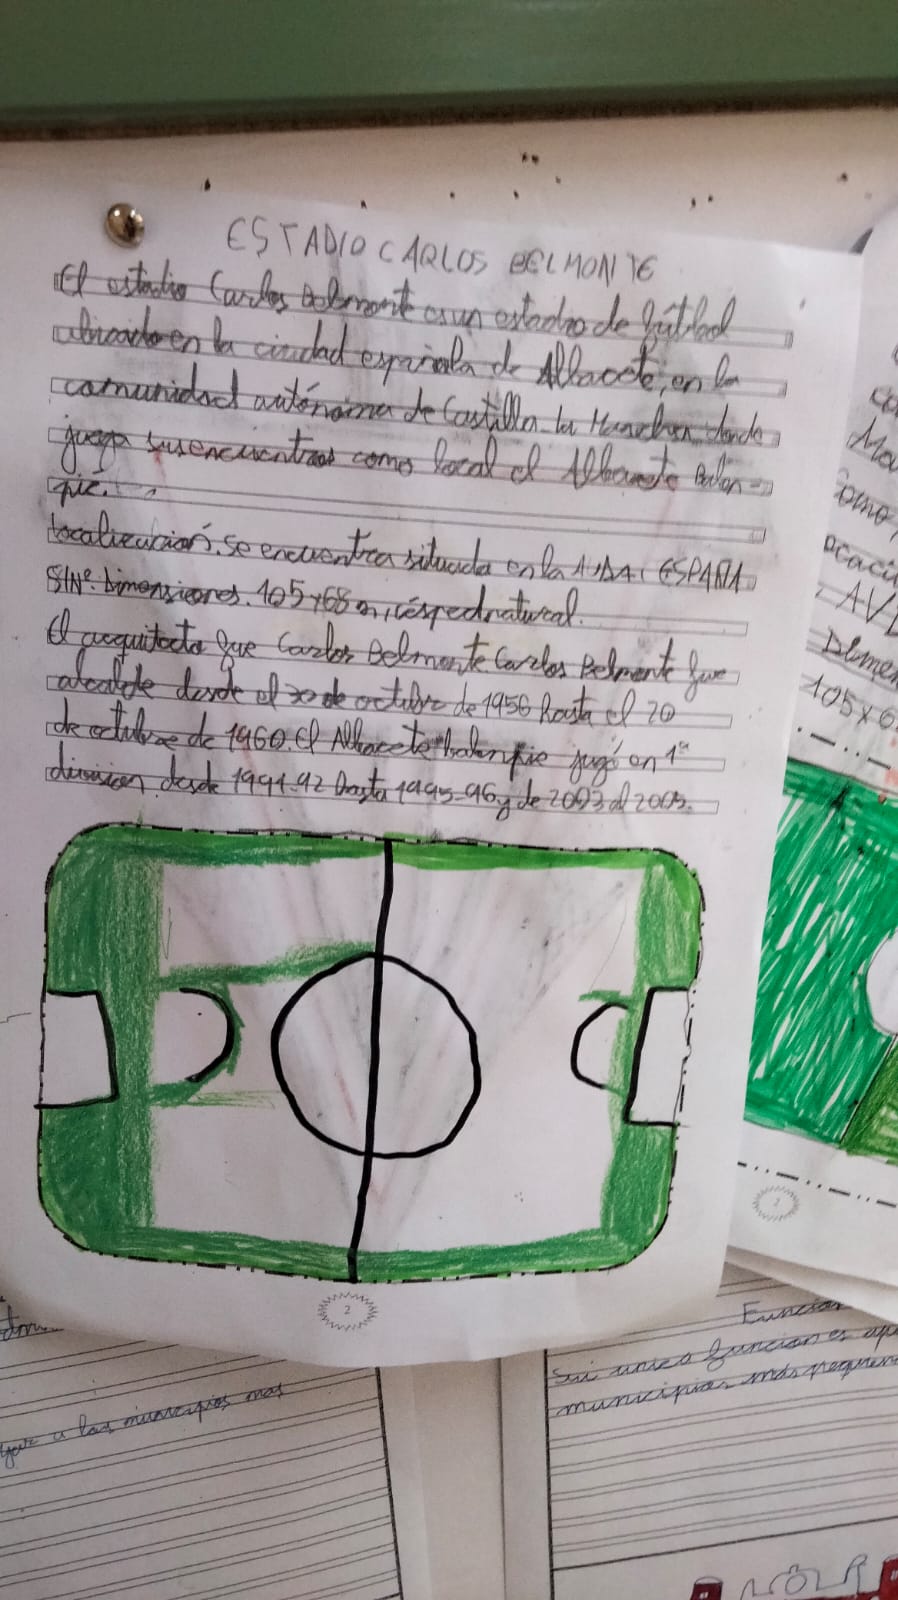 ESTADIO CARLOS BELMONTE
El estadio Carlos Belmonte es un estadio de fútbol
ubicado en la ciudad española de Albacete, en la
comunidad autónoma de Castilla la Mancha, donde
juega sus encuentros como local el Albacete Balon-
pié.
Localización. Se encuentra situada en la AVDA. ESPAÑA
S/Nº. Dimensiones. 105x68 m, césped natural.
El arquitecto fue Carlos Belmonte Carlos Belmonte fue
alcalde desde el 20 de octubre de 1956 hasta el 20
de octubre de 1960. El Albacete balonpie jugó en 1ª
division desde 1991-92 hasta 1995-96 y de 2003 al 2005.
2
como
AV
Dimen
105x6
2
a los municipios mas
Funcion
Su unica funcion es
municipios más pequeñ